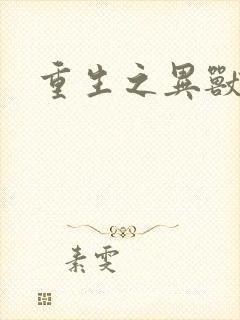 重生之異獸
素雯